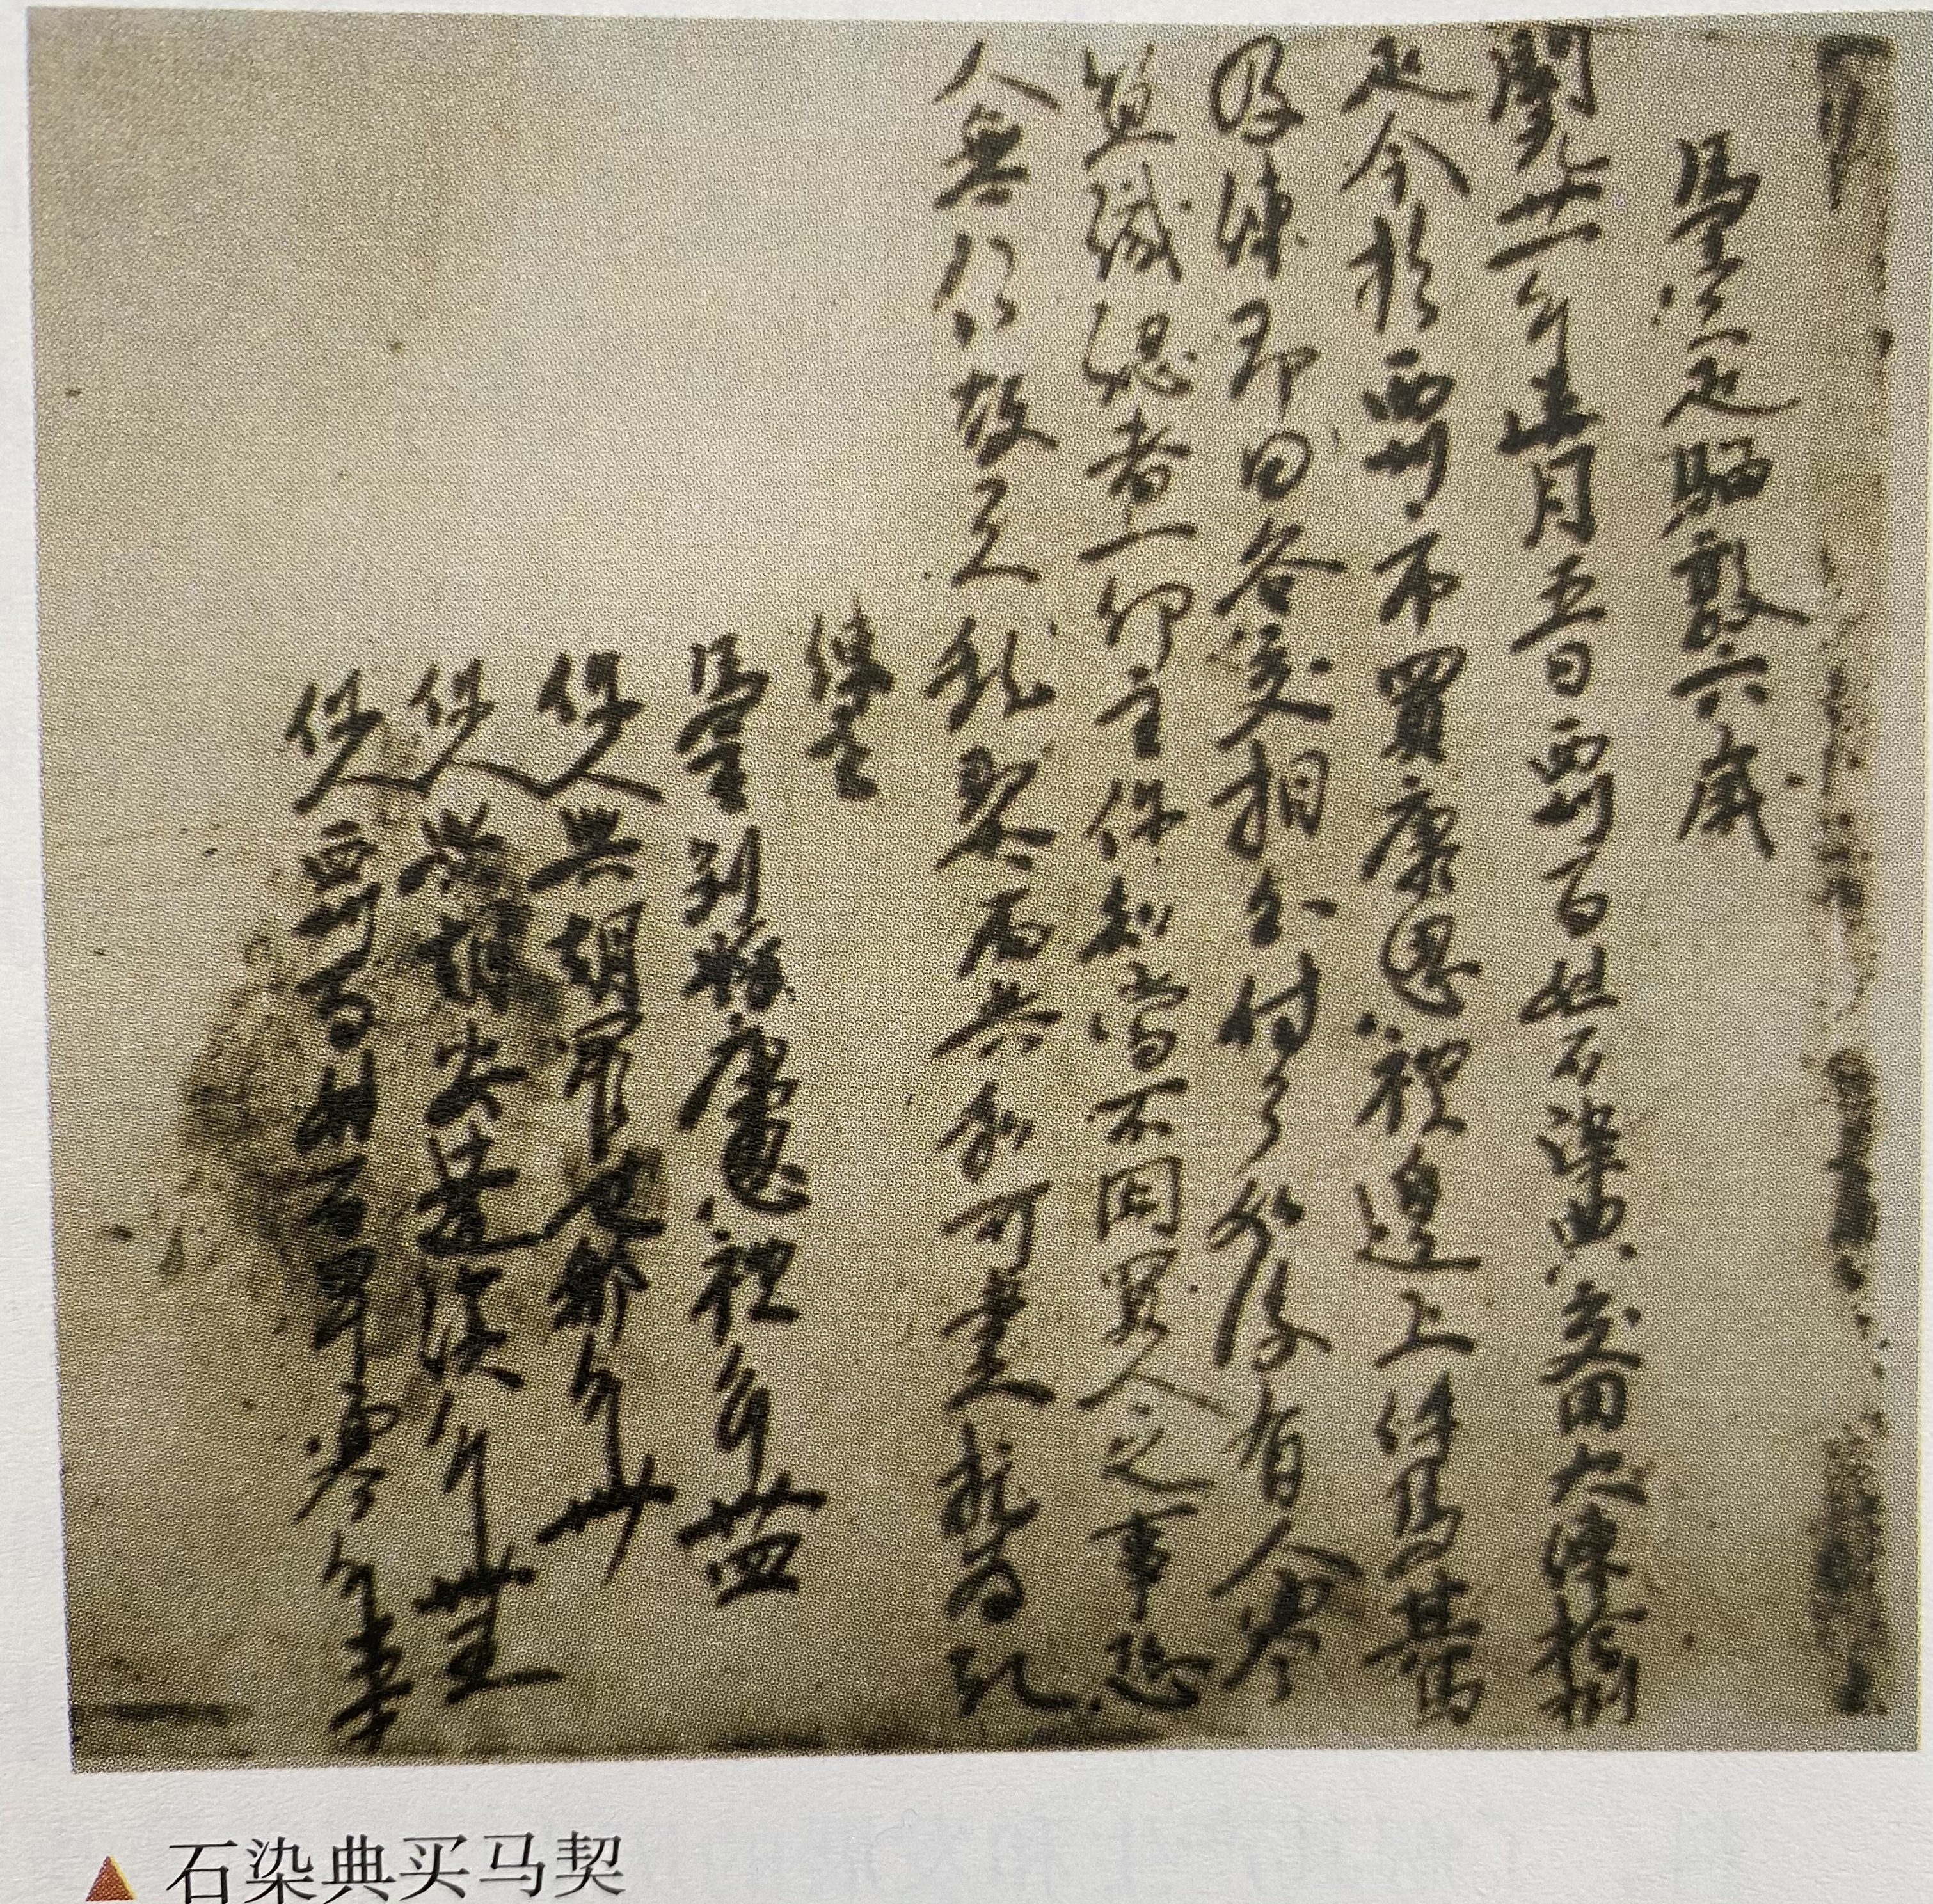 馬壹疋騮敦六歲
開元廿一年正月五日西州百姓石染典交用大練拾捌
疋今於西州市買康思禮邊上件馬其馬
及練即日各交相分付了如後有人寒
盜識認者一仰主保知當不関買人之事恐
人無信故立私契両共和可畫指為記
練主
馬主別将康思禮年卅四
保人興胡罗也那年卌
保人興胡安達漢年卌五
保人西州百姓石早寒年五十
▲ 石染典买马契